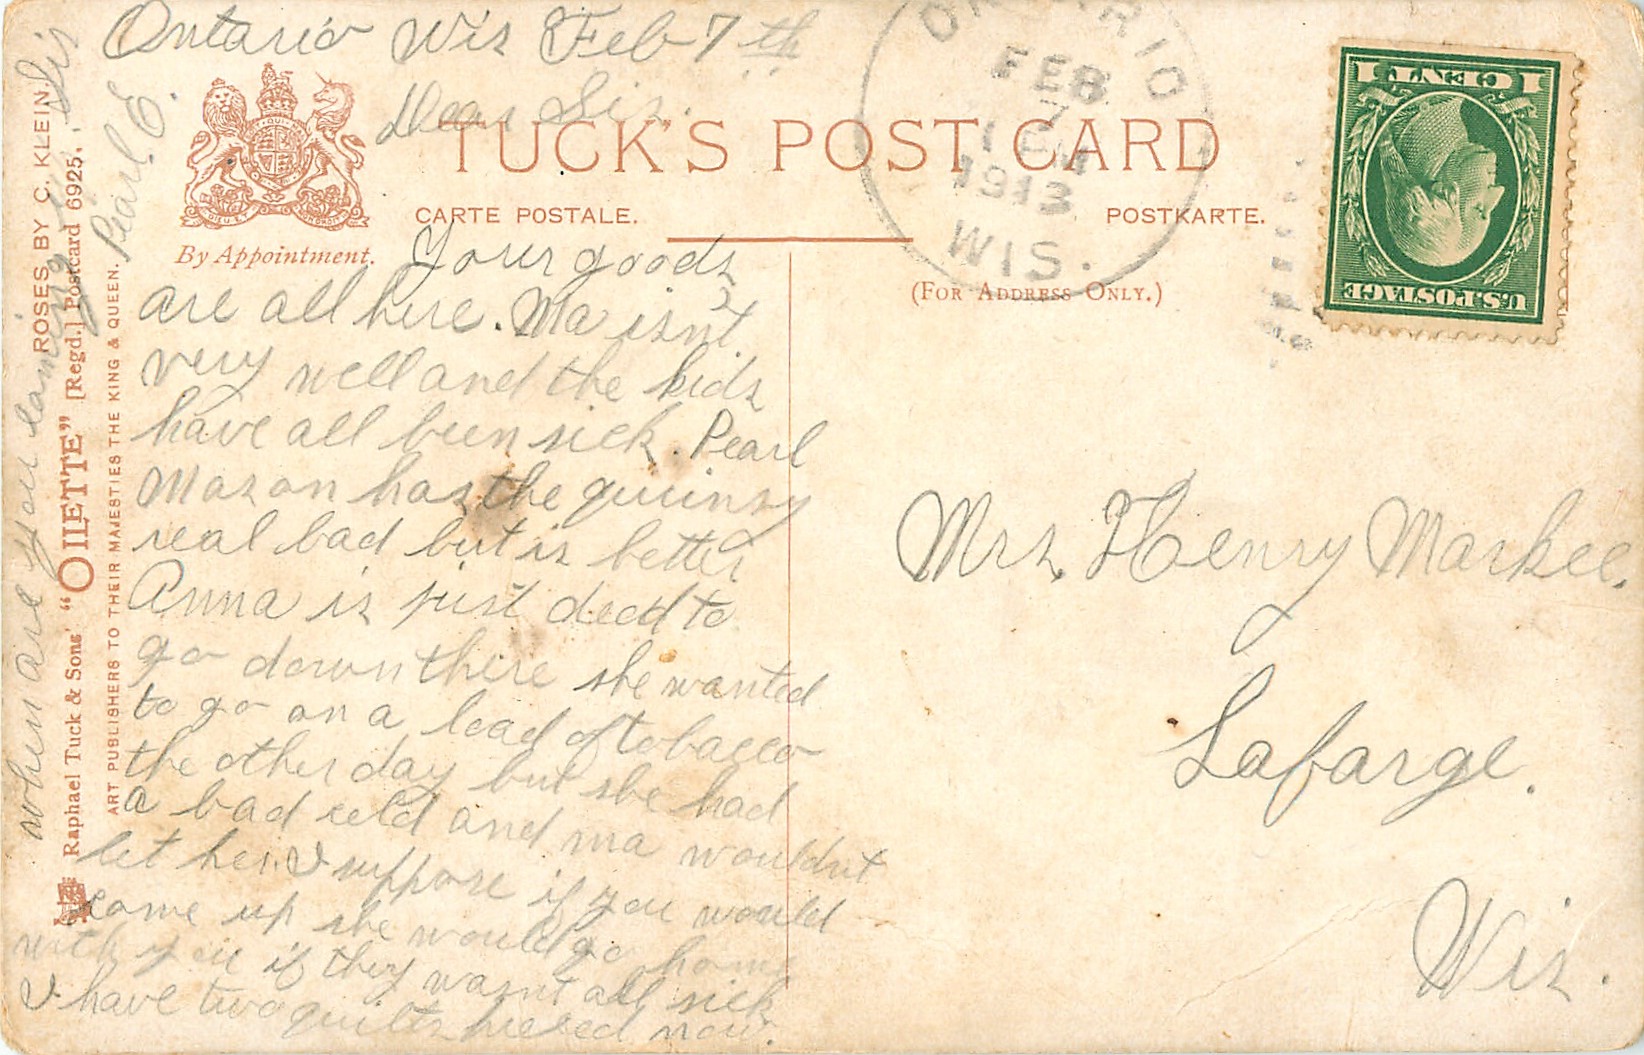 Ontario Wis Feb 7th
Dear Sis.
TUCK'S POST CARD
CARTE POSTALE.
POSTKARTE.
By Appointment.
(FOR ADDRESS ONLY.)
ONTARIO
FEB
7
1913
WIS.
1 CENT 1
U.S. POSTAGE
Your goods
are all here. Ma isn't
very well and the kids
have all been sick. Pearl
Mason has the quinsy
real bad but is better
Anna is just dead to
go down there she wanted
to go on a load of tobacco
the other day but she had
a bad cold and ma wouldnt
let her. I suppose if you would
come up she would go home
with you if they wasnt all sick
I have two quilts pieced now.
when are you coming up
Sis
Pearl E.
ROSES BY C. KLEIN.
Raphael Tuck & Sons' "OILETTE" [Regd.] Postcard 6925.
ART PUBLISHERS TO THEIR MAJESTIES THE KING & QUEEN.
Mrs. Henry Markee.
Lafarge.
Wis.